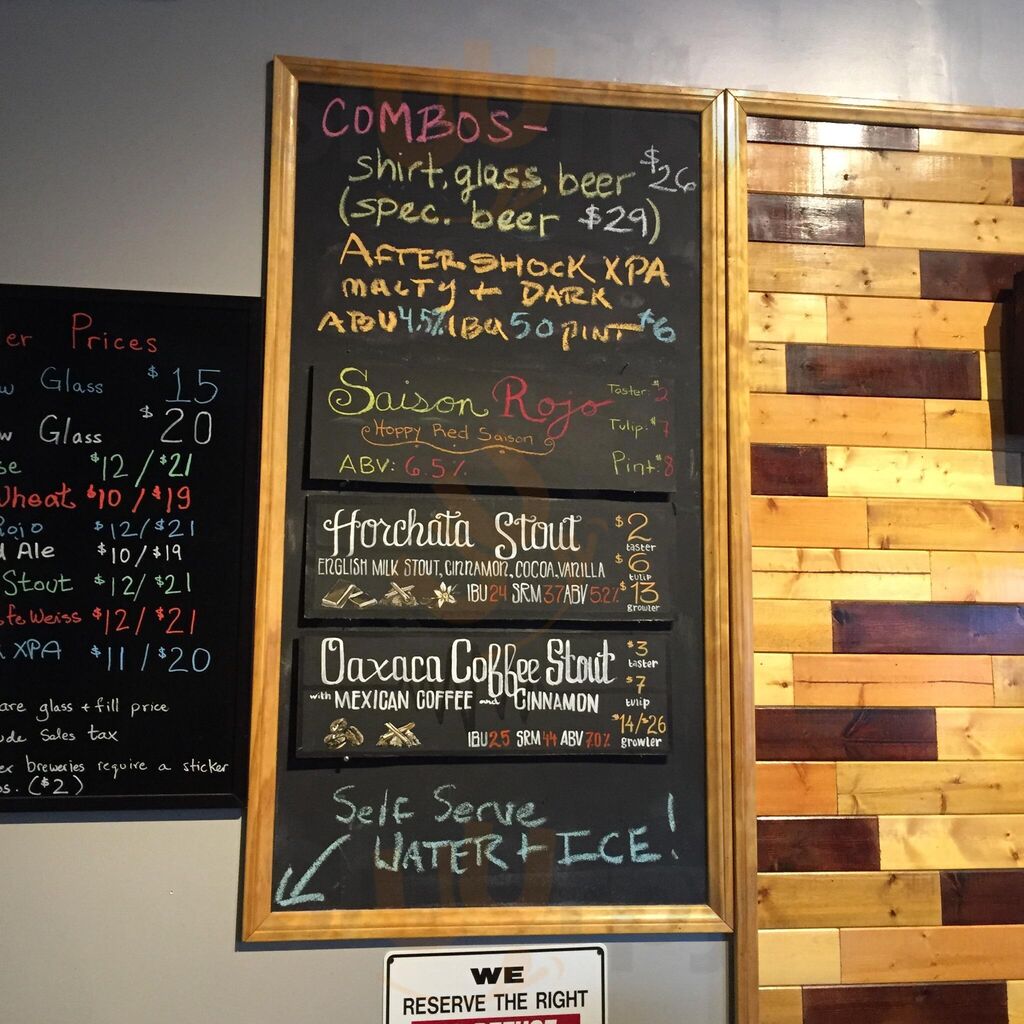 er Prices
w Glass $15
w Glass $20
se $12/$21
Wheat $10/$19
Rojo $12/$21
d Ale $10/$19
Stout $12/$21
feWeiss $12/$21
XPA $11/$20
are glass + fill price
ude sales tax
er breweries require a sticker
os. ($2)
COMBOS-
shirt, glass, beer $26
(spec. beer $29)
AFTERSHOCK XPA
MALTY + DARK
ABU 4.5% IBU 50 PINT $6
Saison Rojo
Hoppy Red Saison
ABV: 6.5%
Taster: $2
Tulip: $7
Pint: $8
Horchata Stout
ENGLISH MILK STOUT, CINNAMON, COCOA, VANILLA
IBU 24 SRM 37 ABV 5.2%
$2
taster
$6
tulip
$13
growler
Oaxaca Coffee Stout
with MEXICAN COFFEE and CINNAMON
IBU 25 SRM 44 ABV 7.0%
$3
taster
$7
tulip
$14/$26
growler
Self Serve
WATER + ICE!
WE
RESERVE THE RIGHT